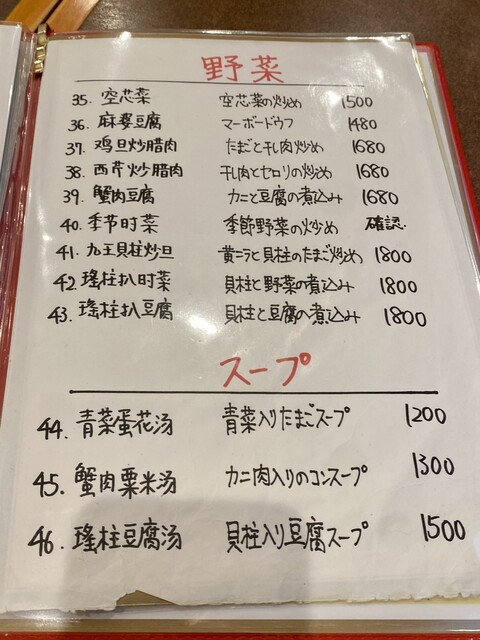 野菜
35. 空芯菜 空芯菜の炒め 1500
36. 麻婆豆腐 マーボードウフ 1480
37. 鸡旦炒腊肉 たまごと干し肉炒め 1680
38. 西芹炒腊肉 干し肉とセロリの炒め 1680
39. 蟹肉豆腐 カニと豆腐の煮込み 1680
40. 季节时菜 季節野菜の炒め 確認.
41. 九王貝柱炒旦 黄ニラと貝柱のたまご炒め 1800
42. 瑤柱扒时菜 貝柱と野菜の煮込み 1800
43. 瑤柱扒豆腐 貝柱と豆腐の煮込み 1800
スープ
44. 青菜蛋花汤 青菜入りたまごスープ 1200
45. 蟹肉粟米汤 カニ肉入りのコンスープ 1300
46. 瑤柱豆腐汤 貝柱入り豆腐スープ 1500